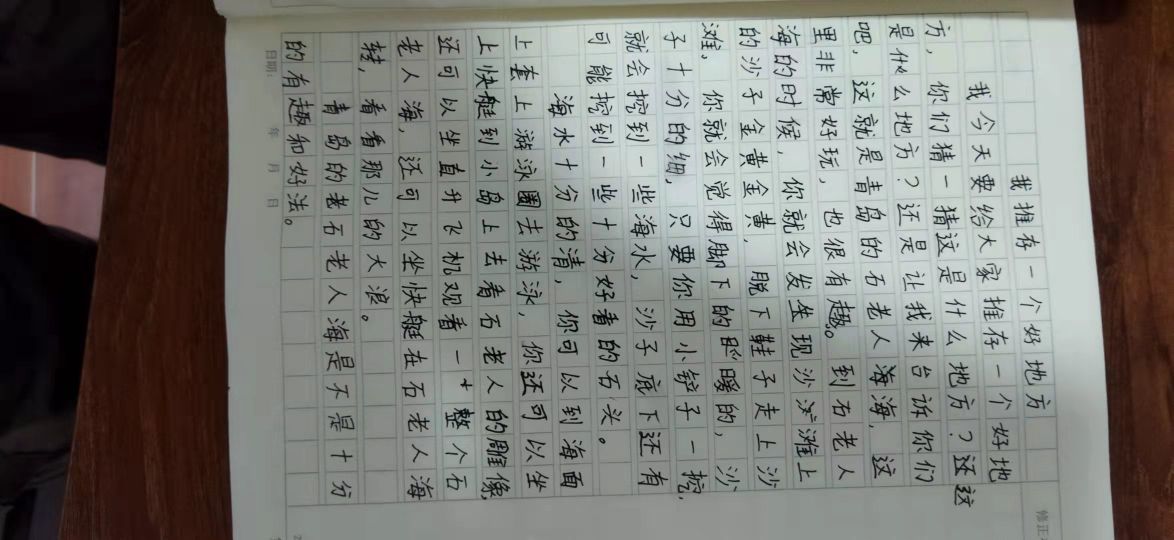 我推存一个好地方
我今天要给大家推存一个好地
方，你们猜一猜这是什么地方？还这
是什么地方？还是让我来台诉你们
吧，这就是青岛的石老人海海，这
里非常好玩，也很有趣。到右老人
海的时候，你就会发生现沙滩滩上
的沙子金黄金黄，脱下鞋子走上沙
滩，你就会觉得脚下的暖暖的，沙
子十分的细，只要你用小铲子一挖，
就会挖到一些海水，沙子底下还有
可能挖到一些十分好看的石头。
海水十分的清，你可以到海面
上套上游泳圈去游泳，你还可以坐
上快艇到小岛上去看石老人的雕像
还可以坐直升飞机观看一十整个石
老人海，还可以坐快艇在石老人海
转，看看那儿的大浪。
青岛的老石老人海是不是十份
的有趣和好法。
日期： 年 月 日
修正